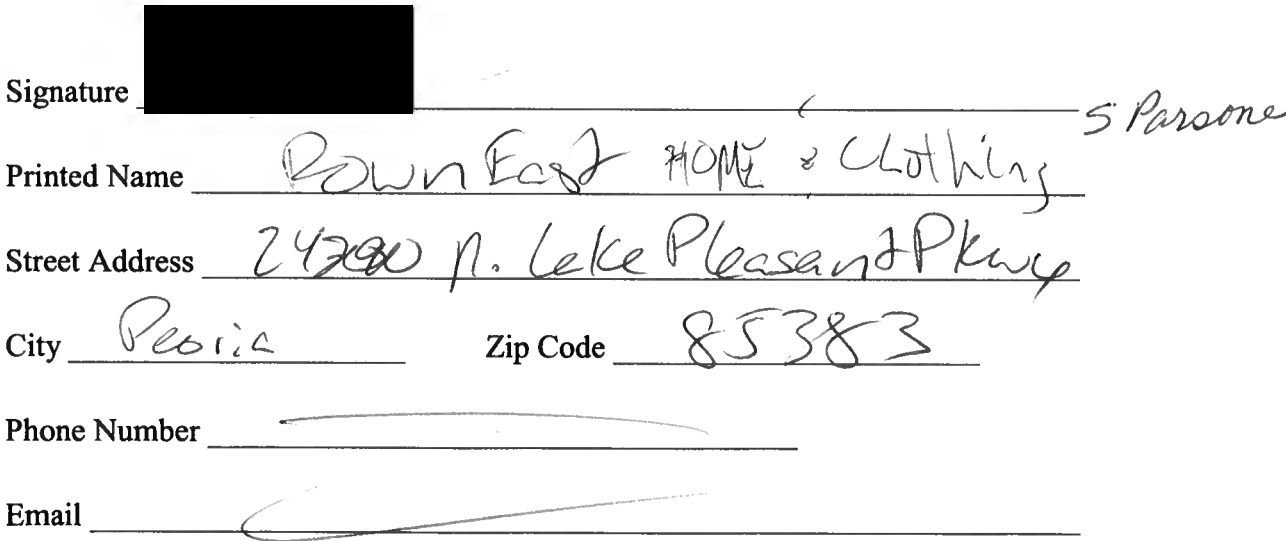 Signature
S Parsons
Printed Name Down East HOME & Clothing
Street Address 24280 N. Lake Pleasant Pkwy
City Peoria Zip Code 85383
Phone Number
Email